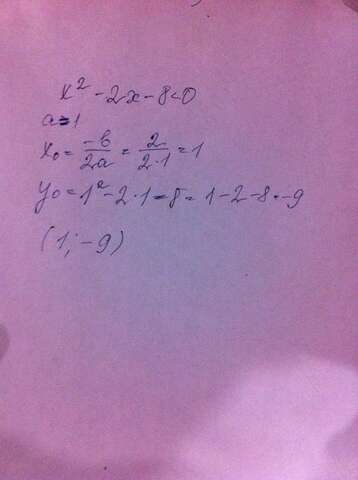 x² - 2x - 8 < 0
a = 1
x₀ = -b/2a = 2/2·1 = 1
y₀ = 1² - 2·1 - 8 = 1 - 2 - 8 = -9
(1; -9)